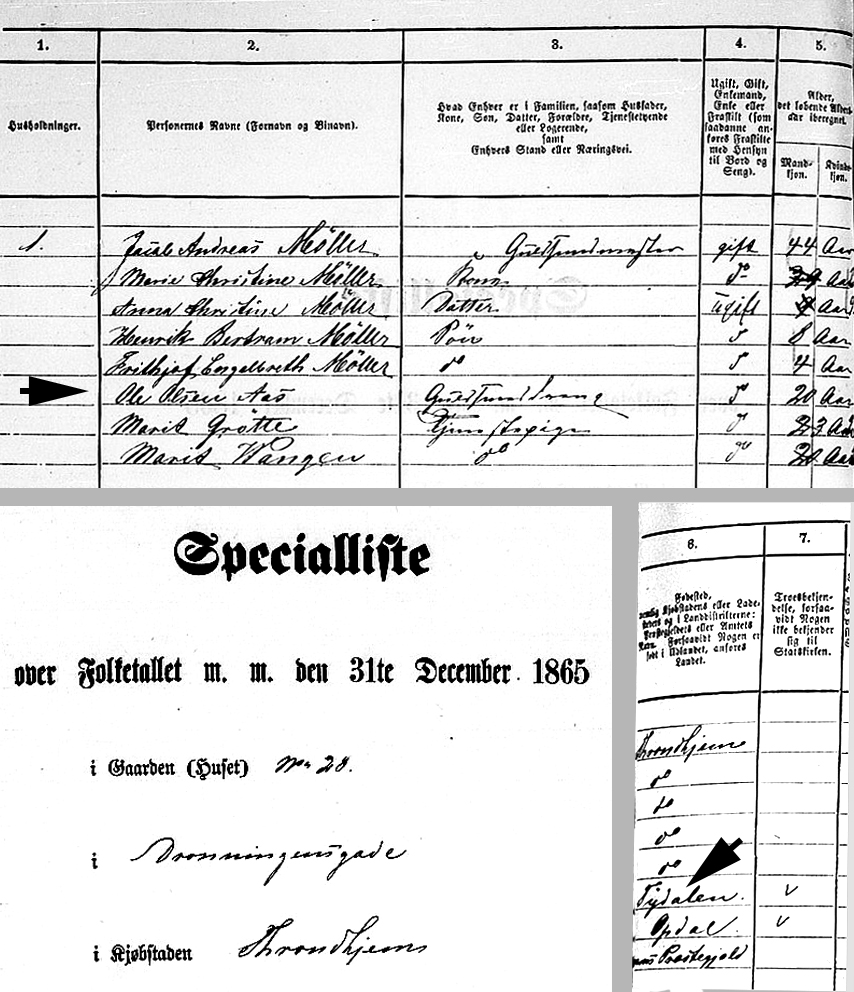 1. 2. 3. 4. 5.
Husholdninger.
Personernes Navne (Fornavn og Binavn).
Hvad Enhver er i Familien, saasom Husfader,
Kone, Søn, Datter, Forældre, Tjenestetyende
eller Logerende,
samt
Enhvers Stand eller Næringsvei.
Ugift, Gift,
Enkemand,
Enke eller
Fraskilt (som
saadanne an-
føres Fraskilte
med Hensyn
til Bord og
Seng).
Alder,
det løbende Alders-
aar iberegnet.
Mand-
kjøn.
Kvinde-
kjøn.
1. Jacob Andreas Möller Guldsmedmester gift 44 Aar
Marie Christine Möller Kone do
Anna Christine Möller Datter ugift 9 Aar
Henrik Bertram Möller Sön d 8 Aar
Frithjof Engelbreth Möller do d 4 Aar
Ole Olsen Aas Guldsmeddreng d 20 Aar
Marit Grötte Tjenestepige d 23 Aar
Marit Wangen do do 20 Aar
Specialliste
over Folketallet m. m. den 31te December 1865
i Gaarden (Huset) No 28.
i Dronningensgade
i Kjøbstaden Throndhjem
6. 7.
Fødested,
nemlig Kjøbstadens eller Lade-
stedets og i Landdistrikterne:
Præstegjeldets eller Amtets
Navn. Forsaavidt Nogen er
født i Udlandet, anføres
Landet.
Troesbekjen-
delse, forsaa-
vidt Nogen
ikke bekjender
sig til
Statskirken.
Throndhjem
do
do
do
do
Tydalen. v
Opdal. v
Præstegjeld